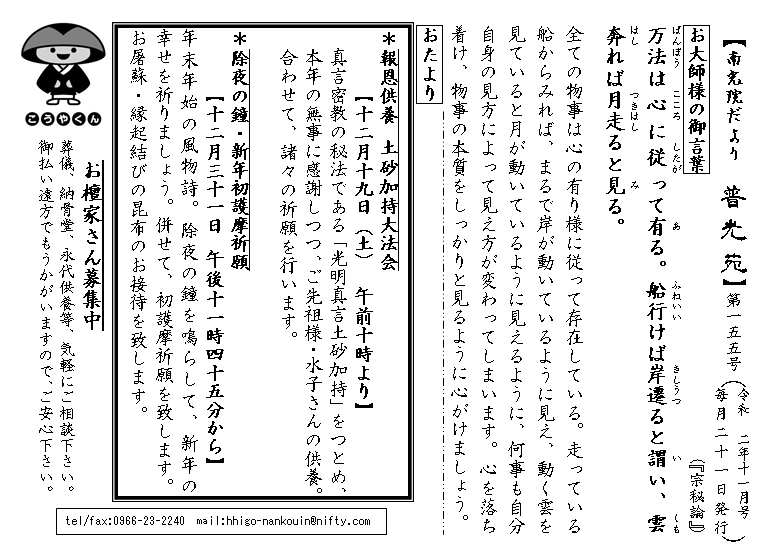 【南光院だより 普光苑】第一五五号（令和 二年十一月号 毎月二十一日発行）
お大師様の御言葉
万法は心に従って有る。船行けば岸遷ると謂い、雲
ばんぽう こころ したが あ ふねいい きしうつ い しも
奔れば月走ると見る。
はし つきはし み
『宗秘論』
全ての物事は心の有り様に従って存在している。走っている
船からみれば、まるで岸が動いているように見え、動く雲を
見ていると月が動いているように見えるように、何事も自分
自身の見方によって見え方が変わってしまいます。心を落ち
着け、物事の本質をしっかりと見るように心がけましょう。
おたより
＊報恩供養 土砂加持大法会
【十二月十九日（土） 午前十時より】
真言密教の秘法である「光明真言土砂加持」をつとめ、
本年の無事に感謝しつつ、ご先祖様・水子さんの供養。
合わせて、諸々の祈願を行います。
＊除夜の鐘・新年初護摩祈願
【十二月三十一日 午後十一時四十五分から】
年末年始の風物詩。除夜の鐘を鳴らして、新年の
幸せを祈りましょう。併せて、初護摩祈願を致します。
お屠蘇・縁起結びの昆布のお接待を致します。
こうやくん
お檀家さん募集中
葬儀、納骨堂、永代供養等、気軽にご相談下さい。
御払い遠方でもうかがいますので、ご安心下さい。
tel/fax:0966-23-2240 mail:hhigo-nankouin@nifty.com